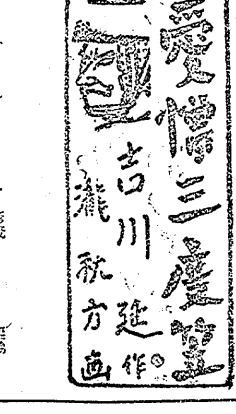 愛憎三度笠
吉川延作
瀧秋方画